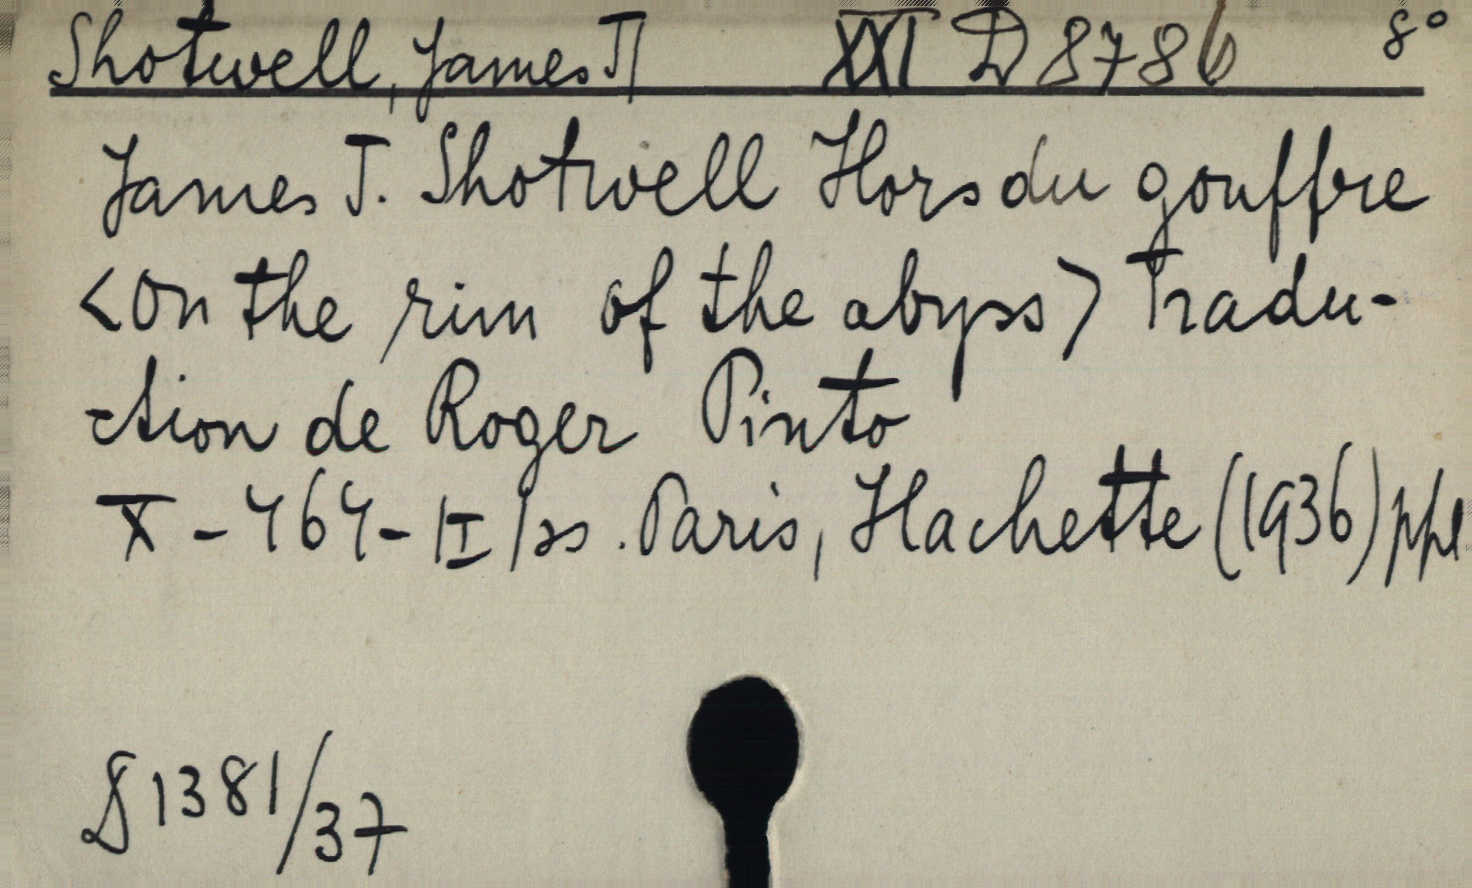 Shotwell, James T XXI D 8786 8°
James T. Shotwell Hors du gouffre
<On the rim of the abyss> Tradu-
ction de Roger Pinto
X - 464 - II /ss. Paris, Hachette (1936) ppl
S 1381/37